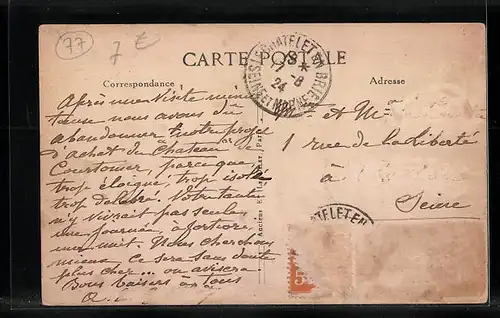 77
7 E
CARTE POSTALE
LE CHATELET-EN-BRIE
SEINE-ET-MARNE
17 - 8
24
Correspondance
Adresse
Après une visite
nous avons dû
abandonner notre projet
d'achat du Château de
Courtomer, parce que
trop éloigné, trop isolé
trop délabré. Votre tante
n'y vivrait pas seule
une journée, a fortiori
une nuit. Nous cherchons
mieux, ce sera sans doute
plus cher... on avisera
Bons baisers à tous
et M
1 rue de la liberté
à
Seine
CHATELET-EN
5